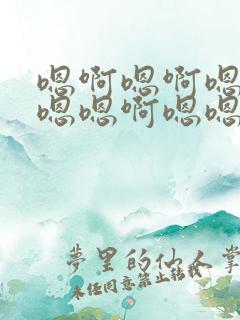 嗯啊嗯啊嗯
嗯嗯啊嗯嗯
夢里的仙人掌
未经同意禁止转载